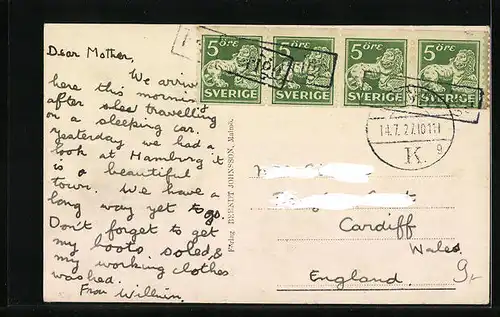 Dear Mother,
We arriv
here this morning
after slee travelling
on a sleeping car.
yesterday we had a
look at Hamburg it
is a beautiful
town. We have a
long way yet to go.
Don't forget to get
my boots soled &
my working clothes
washed.
From William.
Förlag BERNDT JOHNSSON, Malmö.
5 ÖRE
SVERIGE
5 ÖRE
SVERIGE
5 ÖRE
SVERIGE
5 ÖRE
SVERIGE
14.7.27.10111
K.
9
Cardiff
Wales.
England.
9.-